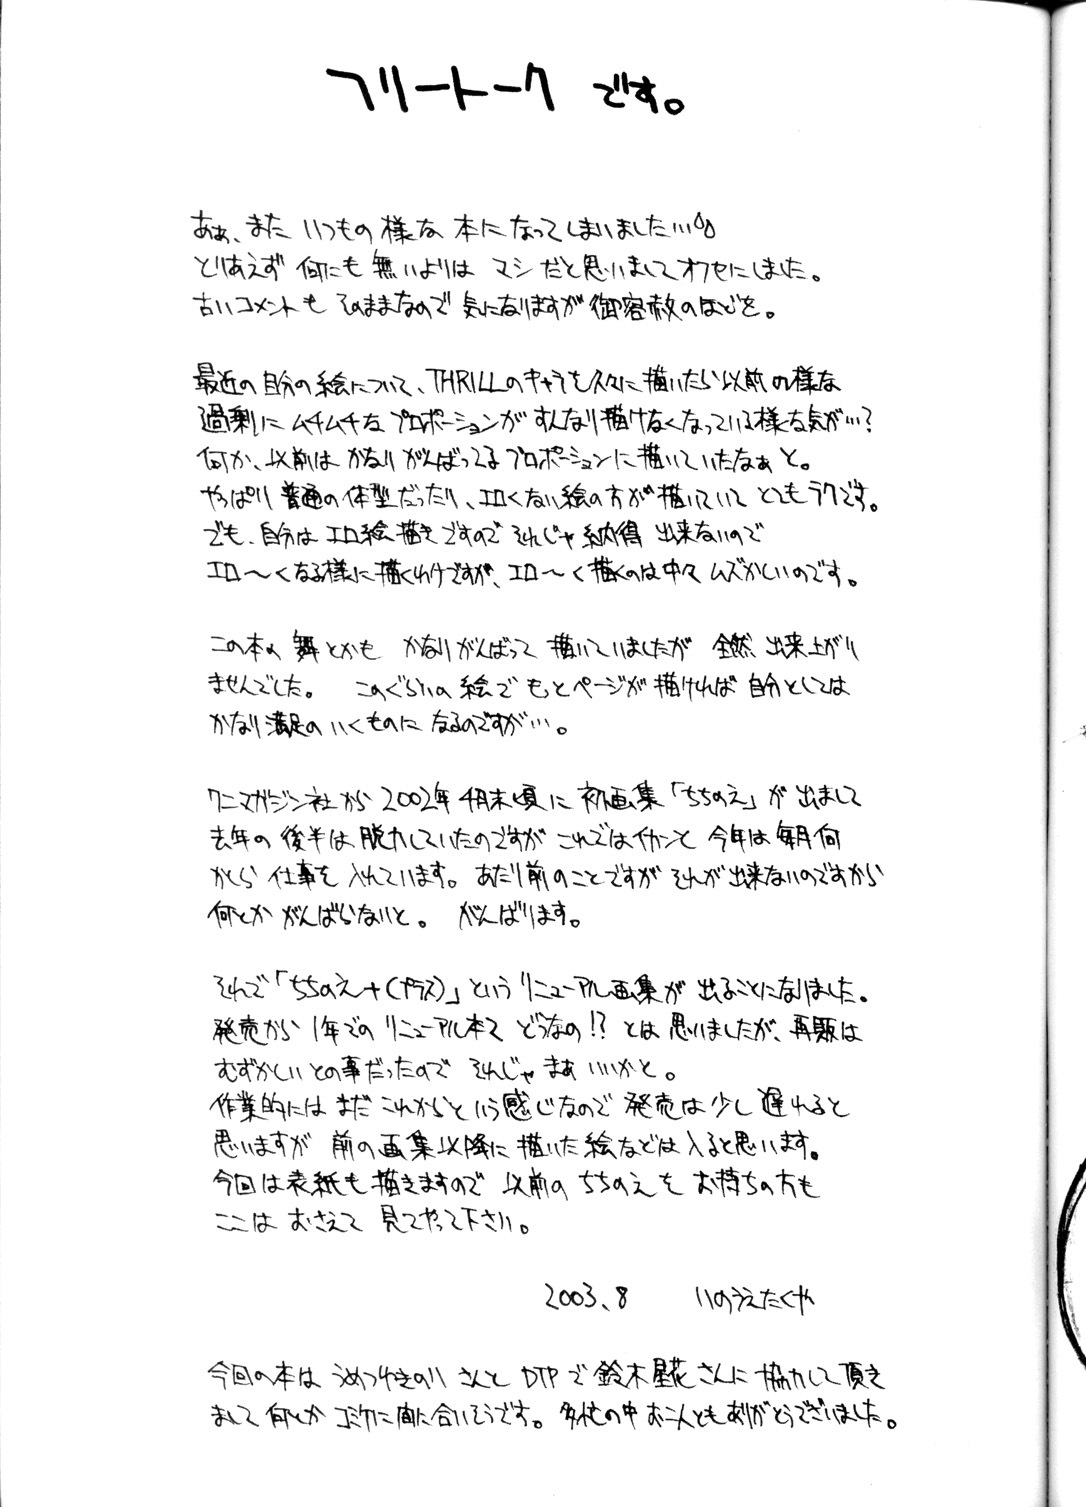 フリートーク です。
あぁ、また いつもの 様な 本に なってしまいました…
とりあえず 何にも 無いよりは マシ だと思いましてオフセにしました。
古いコメントも そのままなので 気になりますが御容赦のほどを。
最近の自分の絵について、THRILLのキャラを久々に描いたら以前の様な
過剰に ムチムチな プロポーションがすんなり描けなくなっている様な気が…?
何か、以前は かなりがんばってるプロポーションに描いていたなぁと。
やっぱり 普通の体型だったり、エロくない絵の方が描いていて とてもラクです。
でも、自分は エロ絵描きですので それじゃ納得 出来ないので
エロ〜くなる様に描くわけですが、エロ〜く描くのは中々ムズかしいのです。
この本の 舞とかも かなりがんばって 描いていましたが 全然 出来上がり
ませんでした。 このぐらいの絵で もっとページが描ければ 自分としては
かなり満足の いくものに なるのですが…。
ワニマガジン社から 2002年 4月末頃に 初画集「ちちのえ」が 出まして
去年の 後半は脱力していたのですが これではイカンと 今年は 毎月何
かしら 仕事を 入れています。あたり前のことですが それが出来ないのですから
何とか がんばらないと。 がんばります。
それで「ちちのえ+(プラス)」という リニューアル画集が 出ることになりました。
発売から 1年での リニューアル本て どうなの!? とは 思いましたが、再販は
むずかしいとの事だったので それじゃ まぁ いいかと。
作業的には まだ これからと いう感じなので 発売は少し 遅れると
思いますが 前の画集以降に 描いた絵などは入ると思います。
今回は表紙も描きますので 以前の ちちのえを お持ちの方も
ここは おさえて 見てやって下さい。
2003、8 いのうえたくや
今回の本は うめつゆきのり さんと DTP で 鈴木星花 さんに 協力して 頂き
まして 何とか コミケに間に合いそうです。多忙の中 お二人ともありがとうございました。